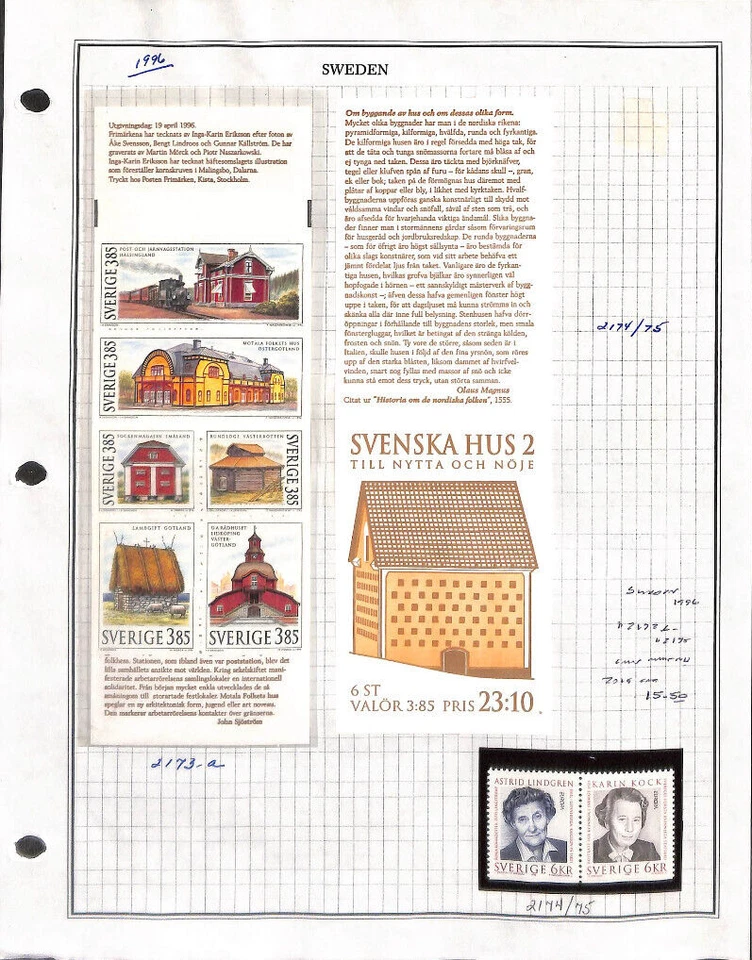 1996
SWEDEN
Utgivningsdag: 19 april 1996.
Frimärkena har tecknats av Inga-Karin Eriksson efter foton av
Åke Svensson, Bengt Lindroos och Gunnar Källström. De har
graverats av Martin Mörck och Piotr Naszarkowski.
Inga-Karin Eriksson har tecknat häftesomslagets illustration
som föreställer kornskruven i Malingsbo, Dalarna.
Tryckt hos Posten Frimärken, Kista, Stockholm.
POST-OCH JÄRNVÄGSSTATION
HÄLSINGLAND
SVERIGE 385
MOTALA FOLKETS HUS
ÖSTERGÖTLAND
SVERIGE 385
SOCKENMAGASIN SMÅLAND
SVERIGE 385
RUNDLOGE VÄSTERBOTTEN
SVERIGE 385
LAMBGIFT GOTLAND
SVERIGE 385
F.D RÅDHUSET
LIDKÖPING
VÄSTER-
GÖTLAND
SVERIGE 385
folkhem. Stationen, som ibland även var poststation, blev det
lilla samhällets ansikte mot världen. Kring sekelskiftet mani-
festerade arbetarrörelsens samlingslokaler en internationell
solidaritet. Från början mycket enkla utvecklades de så
småningom till storartade festlokaler. Motala Folkets hus
speglar en ny arkitektonisk form, jugend eller art noveau.
Den markerar arbetarrörelsens kontakter över gränserna.
John Sjöström
2173-a
Om byggande av hus och om dessas olika form.
Mycket olika byggnader har man i de nordiska rikena:
pyramidformiga, kilformiga, hvälfda, runda och fyrkantiga.
De kilformiga husen äro i regel försedda med höga tak, för
att de täta och tunga snömassorna fortare må blåsa af och
ej tynga ned taken. Dessa äro täckta med björknäfver,
tegel eller klufven spån af furu – för kådans skull –, gran,
ek eller bok; taken på de förmögnas hus däremot med
plåtar af koppar eller bly, i likhet med kyrktaken. Hvalf-
byggnaderna uppföras ganska konstnärligt till skydd mot
våldsamma vindar och snöfall, såväl af sten som trä, och
äro afsedda för hvarjehanda viktiga ändamål. Slika byggna-
der finner man i stormännens gårdar såsom förvaringsrum
för husgeråd och jordbruksredskap. De runda byggnaderna
– som för öfrigt äro högst sällsynta – äro bestämda för
olika slags konstnärer, som vid sitt arbete behöfva ett
jämnt fördelat ljus från taket. Vanligare äro de fyrkan-
tiga husen, hvilkas grofva bjälkar äro synnerligen väl
hopfogade i hörnen – ett sannskyldigt mästerverk af bygg-
nadskonst –; äfven dessa hafva gemenligen fönster högt
uppe i taken, för att dagsljuset må kunna strömma in och
skänka alla där inne full belysning. Stenhusen hafva dörr-
öppningar i förhållande till byggnadens storlek, men smala
fönstergluggar, hvilket är betingat af den stränga kölden,
frosten och snön. Ty vore de större, såsom seden är i
Italien, skulle husen i följd af den fina yrsnön, som röres
upp af den starka blåsten, liksom dammet af hvirfvel-
vinden, snart nog fyllas med massor af snö och icke
kunna stå emot dess tryck, utan störta samman.
Olaus Magnus
Citat ur "Historia om de nordiska folken", 1555.
SVENSKA HUS 2
TILL NYTTA OCH NÖJE
6 ST
VALÖR 3:85 PRIS 23:10
2174/75
SWEDEN
1996
15.50
ASTRID LINDGREN
EUROPA
SVERIGE 6KR
KARIN KOCK
EUROPA
SVERIGE 6KR
2174/75